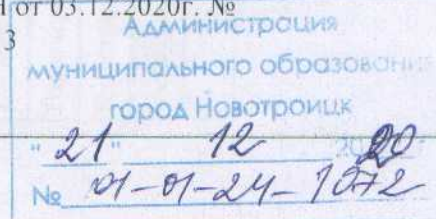 от 03.12.2020г. №
3
Администрация
муниципального образования
город Новотроицк
"21" 12 2020
№ 01-01-24-1972